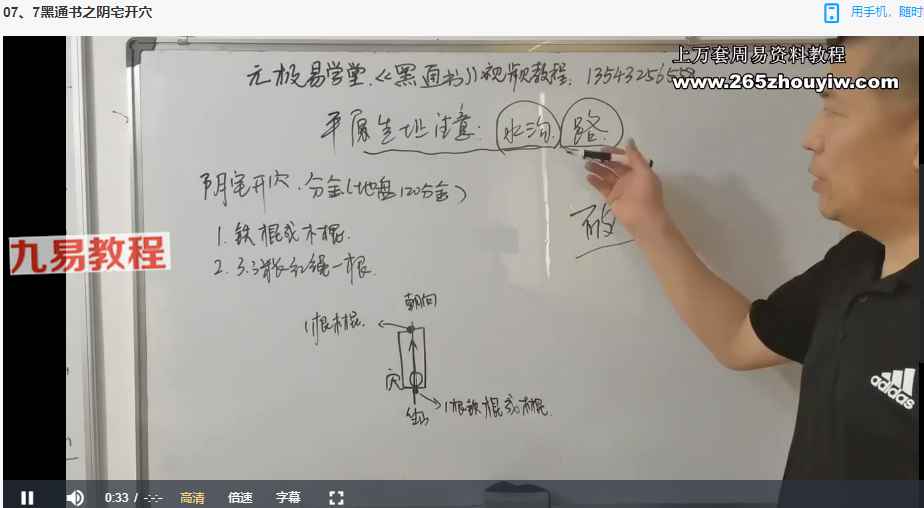 07、7黑通书之阴宅开穴
用手机，随时
上万套周易资料教程
www.265zhouyiw.com
元极易学堂.《黑通书》视频教程: 13543256558
平展 注意: 水沟. 路
阴宅开穴. 分金(地盘120分金)
破
1. 铁棍或木棍.
九易教程
2. 3.3米长红绳一根.
朝向
1根木棍.
穴
1根铁棍或木棍.
坐山
adidas
0:33 / -:-:- 高清 倍速 字幕